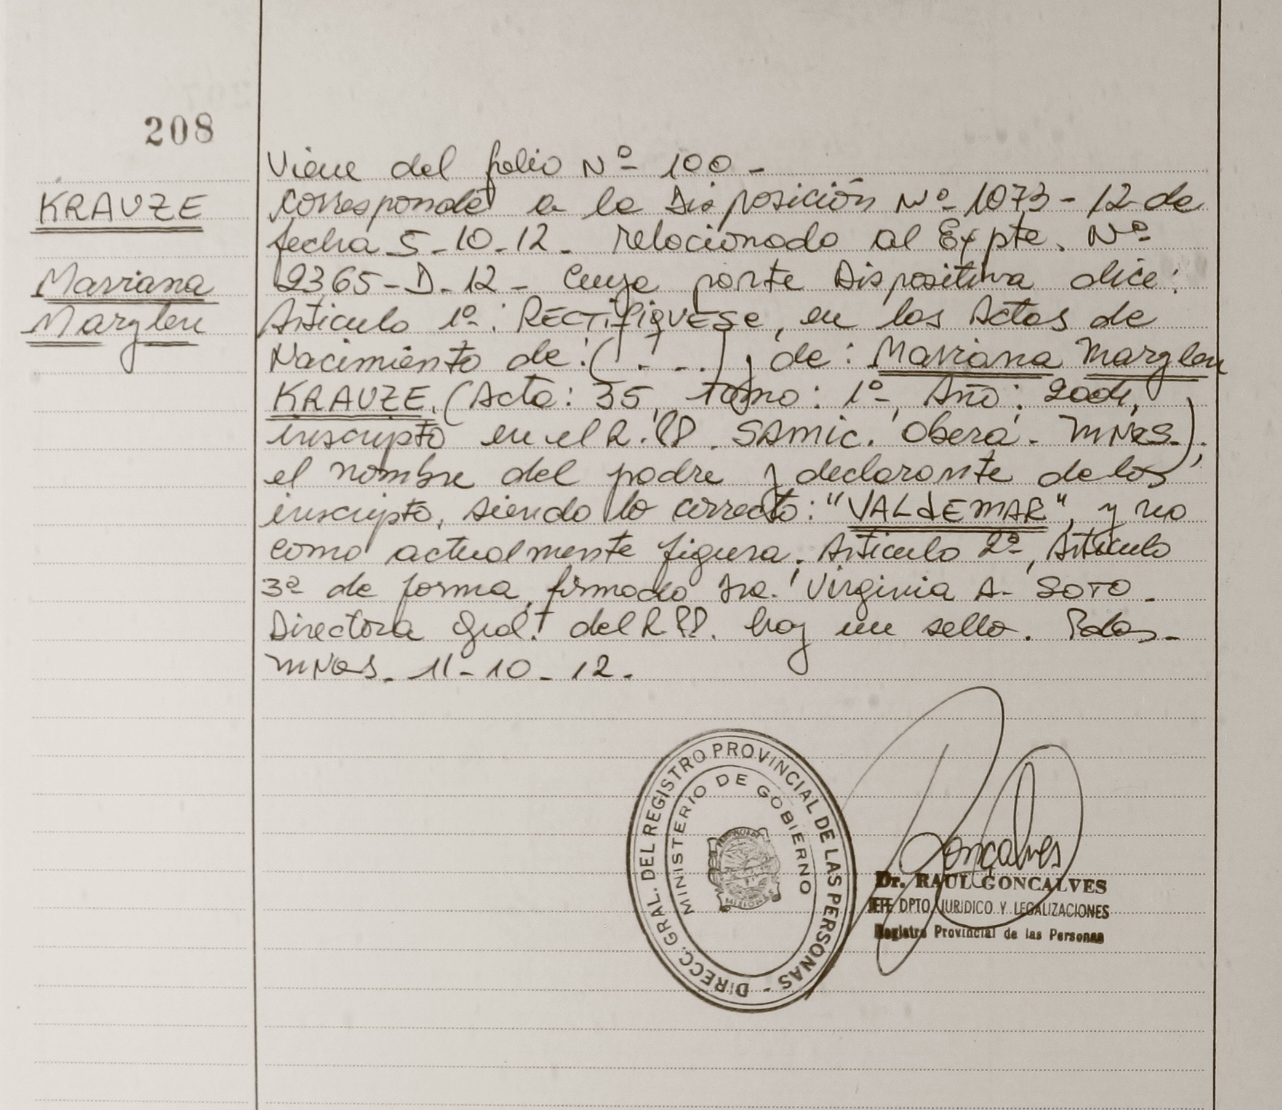 208
KRAUZE
Mariana
Marglen
Viene del folio Nº 100 -
Corresponde a la Disposición Nº 1073 - 12 de
fecha 5-10-12. relacionado al Expte. Nº
9365-D-12 - Cuya parte Dispositiva dice:
Artículo 1º: RECTIFIQUESE, en las Actas de
Nacimiento de: (. . . .), de: Mariana Marglen
KRAUZE, (Acta: 35, Tomo: 1º, Año: 2004,
inscripto en el R.PP. SAMIC. Oberá. MNES.);
el nombre del padre y declarante de los
inscripto, siendo lo correcto: "VALdEMAR", y no
como actualmente figura. Artículo 2º, Artículo
3º de forma, firmado Dra. Virginia A. SOTO -
Directora Gral. del R.PP. hay un sello. Pdas -
MNES. 11-10-12.
DIRECC. GRAL. DEL REGISTRO PROVINCIAL DE LAS PERSONAS -
MINISTERIO DE GOBIERNO
MISIONES
Gonçalves
Dr. RAUL GONCALVES
JEFE DPTO. JURIDICO Y LEGALIZACIONES
Registro Provincial de las Personas